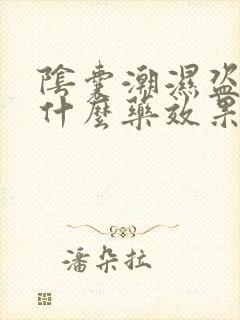 陰囊潮濕盜
什麼藥效果
潘朵拉